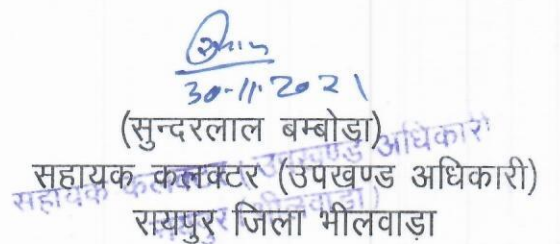 30-11-2021
(सुन्दरलाल बम्बोड़ा)
सहायक कलक्टर (उपखण्ड अधिकारी)
रायपुर जिला भीलवाड़ा
सहायक कलक्टर (उपखण्ड अधिकारी)